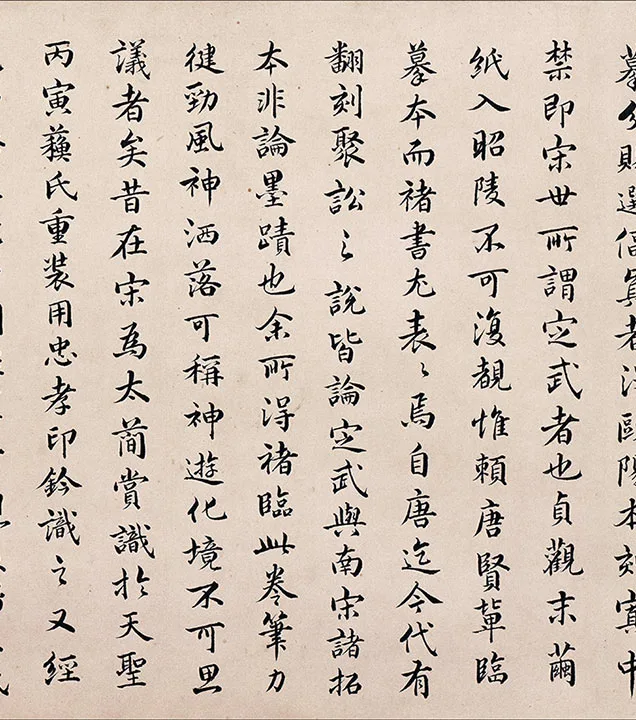 摹分賜選真者得歐陽本刻寘中
禁即宋世所謂定武者也貞觀末繭
紙入昭陵不可復覩惟賴唐賢輩臨
摹本而褚書尤表々焉自唐迄今代有
翻刻聚訟之說皆論定武與南宋諸拓
本非論墨蹟也余所得褚臨此卷筆力
健勁風神洒落可稱神遊化境不可思
議者矣昔在宋為太簡賞識於天聖
丙寅蘇氏重裝用忠孝印鈐識之又經